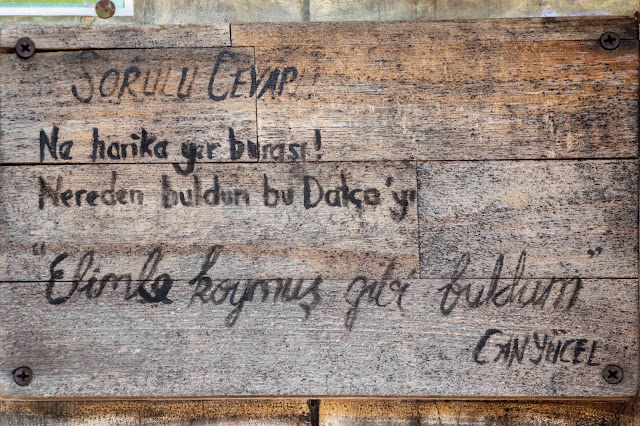 SORULU CEVAP
Ne harika yer burası!
Nereden buldum bu Datça'yı
"Elimle koymuş gibi buldum"
CAN YÜCEL